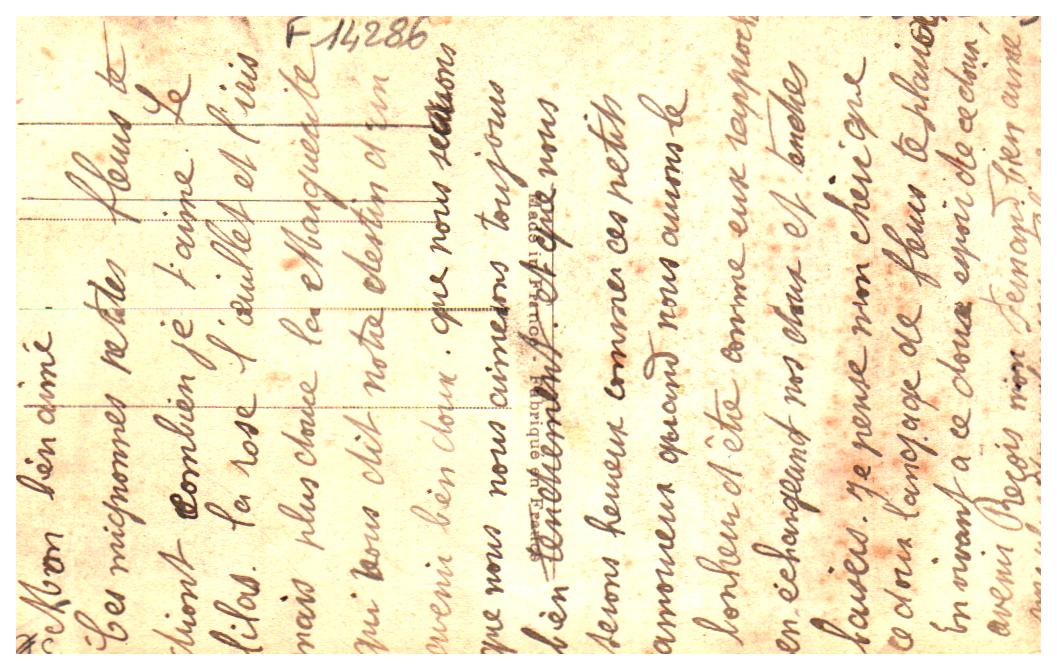 F 14286
Mon bien aimé
Ces mignonnes petites fleurs te
diront combien je t'aime. Le
lilas. la rose l'aeuillet et l'iris
mais plus doue la Marguerite
qui vous dit notre destin d'un
avenir bien doux. que nous serons
que nous nous aimerons toujours
bien tendrement. et que nous
serons heureux comme ces petits
amoureux quand nous aurons le
bonheur d'être comme eux
en échangeant nos doux et tendres
baisers. Je pense mon chéri que
ce doux langage de fleurs te plaira
En vivant a ce doux espoir de ce doux
avenir Reçois mon Fernand bien aimé
Made in France. Fabriqué en France